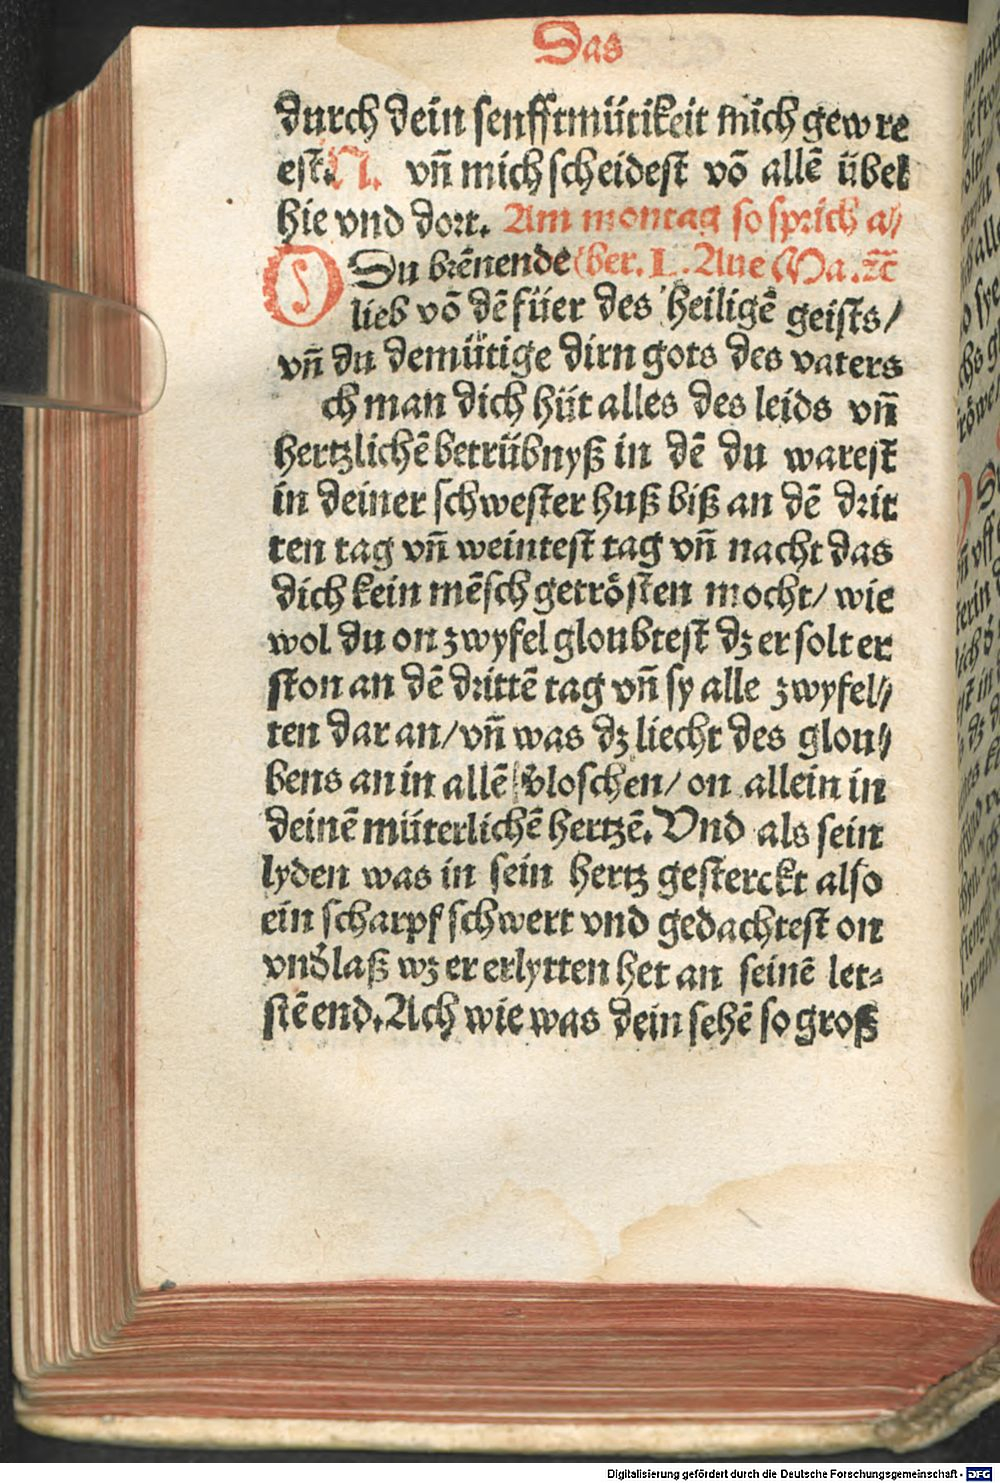 Das
durch dein senfftmütikeit mich gewre
est. N. vn̄ mich scheidest vō allē übel
hie vnd dort. Am montag so sprich a//
O Du brēnende (ber. L. Aue Ma. ꝛc̄
lieb vō dē füer des heiligē geists/
vn̄ du demütige dirn gots des vaters
ch man dich hüt alles des leids vn̄
hertzlichē betrübnyß in dē du warest
in deiner schwester huß biß an dē drit
ten tag vn̄ weintest tag vn̄ nacht das
dich kein mēsch getrösten mocht/ wie
wol du on zwyfel gloubtest dz er solt er
ston an dē drittē tag vn̄ sy alle zwyfel//
ten dar an/ vn̄ was dz liecht des glou//
bens an in allē v̾loschen/ on allein in
deinē müterlichē hertzē. Vnd als sein
lyden was in sein hertz gesterckt also
ein scharpf schwert vnd gedachtest on
vnd̾laß wz er erlytten het an seinē let⸗
stē end. Ach wie was dein sehē so groß
Digitalisierung gefördert durch die Deutsche Forschungsgemeinschaft - DFG